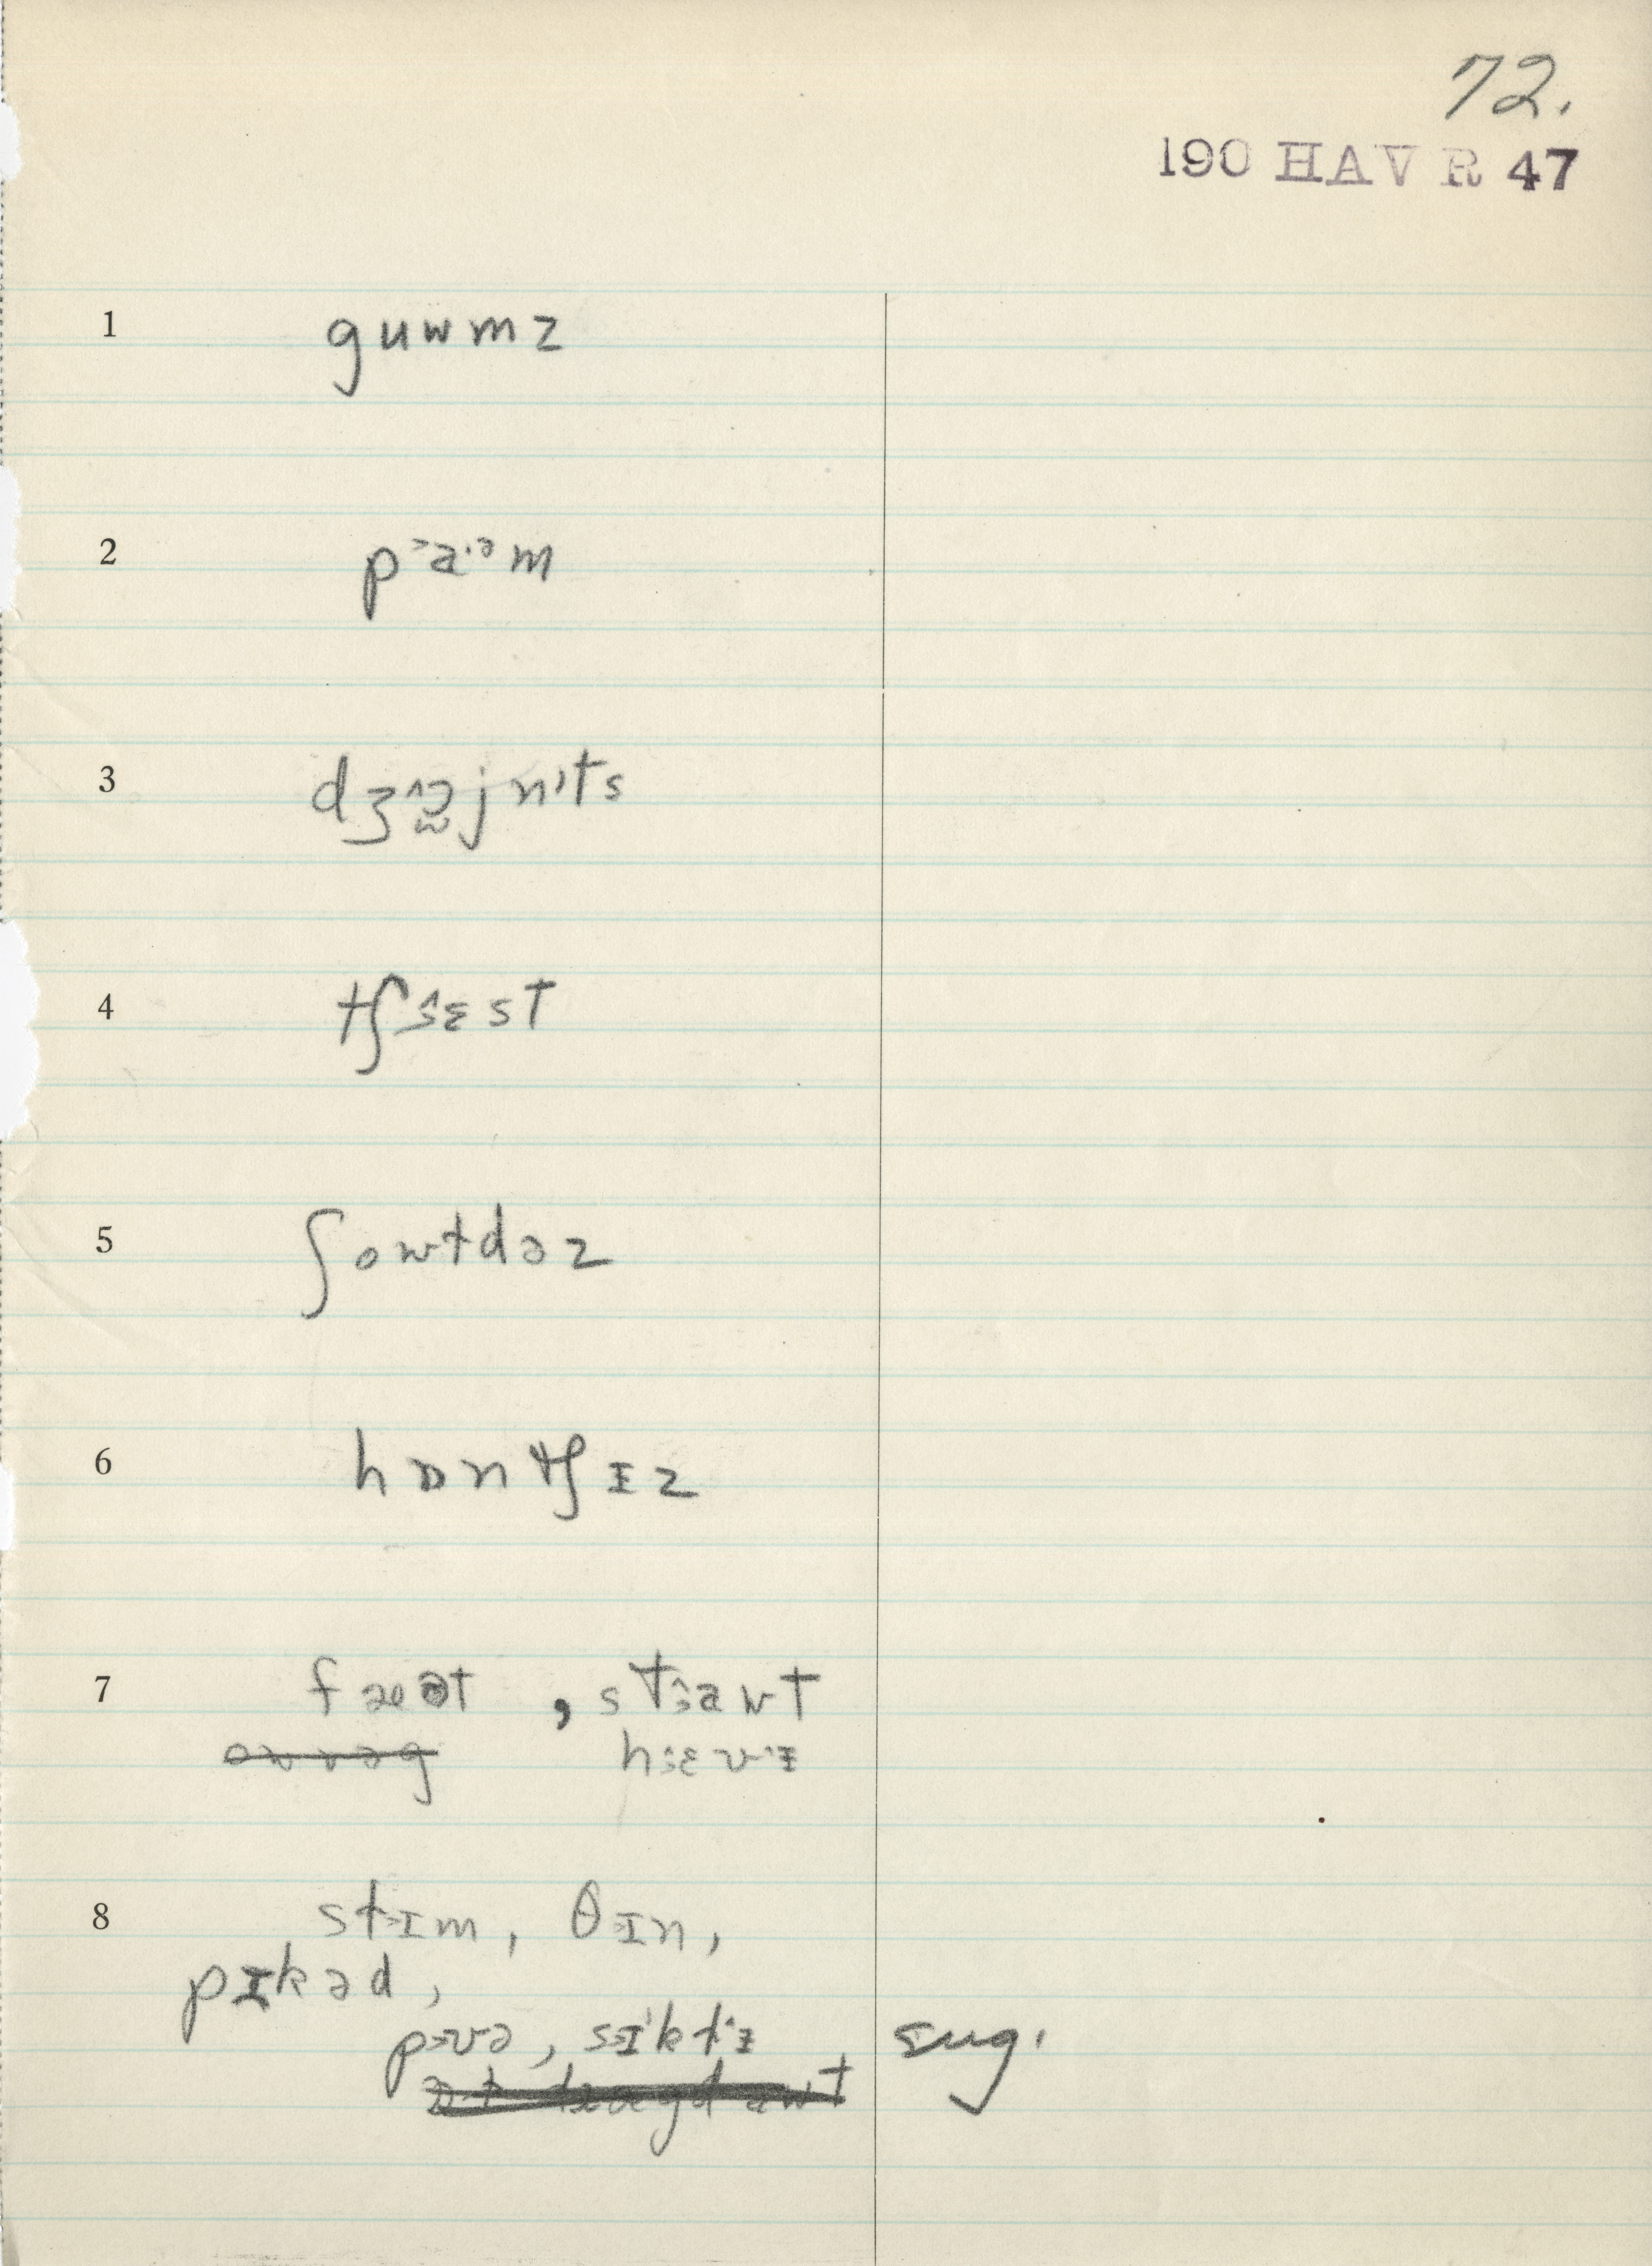 72.
190 HAVR 47
1 guwmz
2 p˃a·ᵊm
3 dʒ jnɪts
4 tʃ˄˃ɛst
5 ʃowtdəz
6 hɒntʃɪz
7 fæət , st˃awt
h˃ɛv˄ɪ
8 st˃ɪm, θ˃ɪn,
pɪkəd,
sɪkt˄ɪ sug.